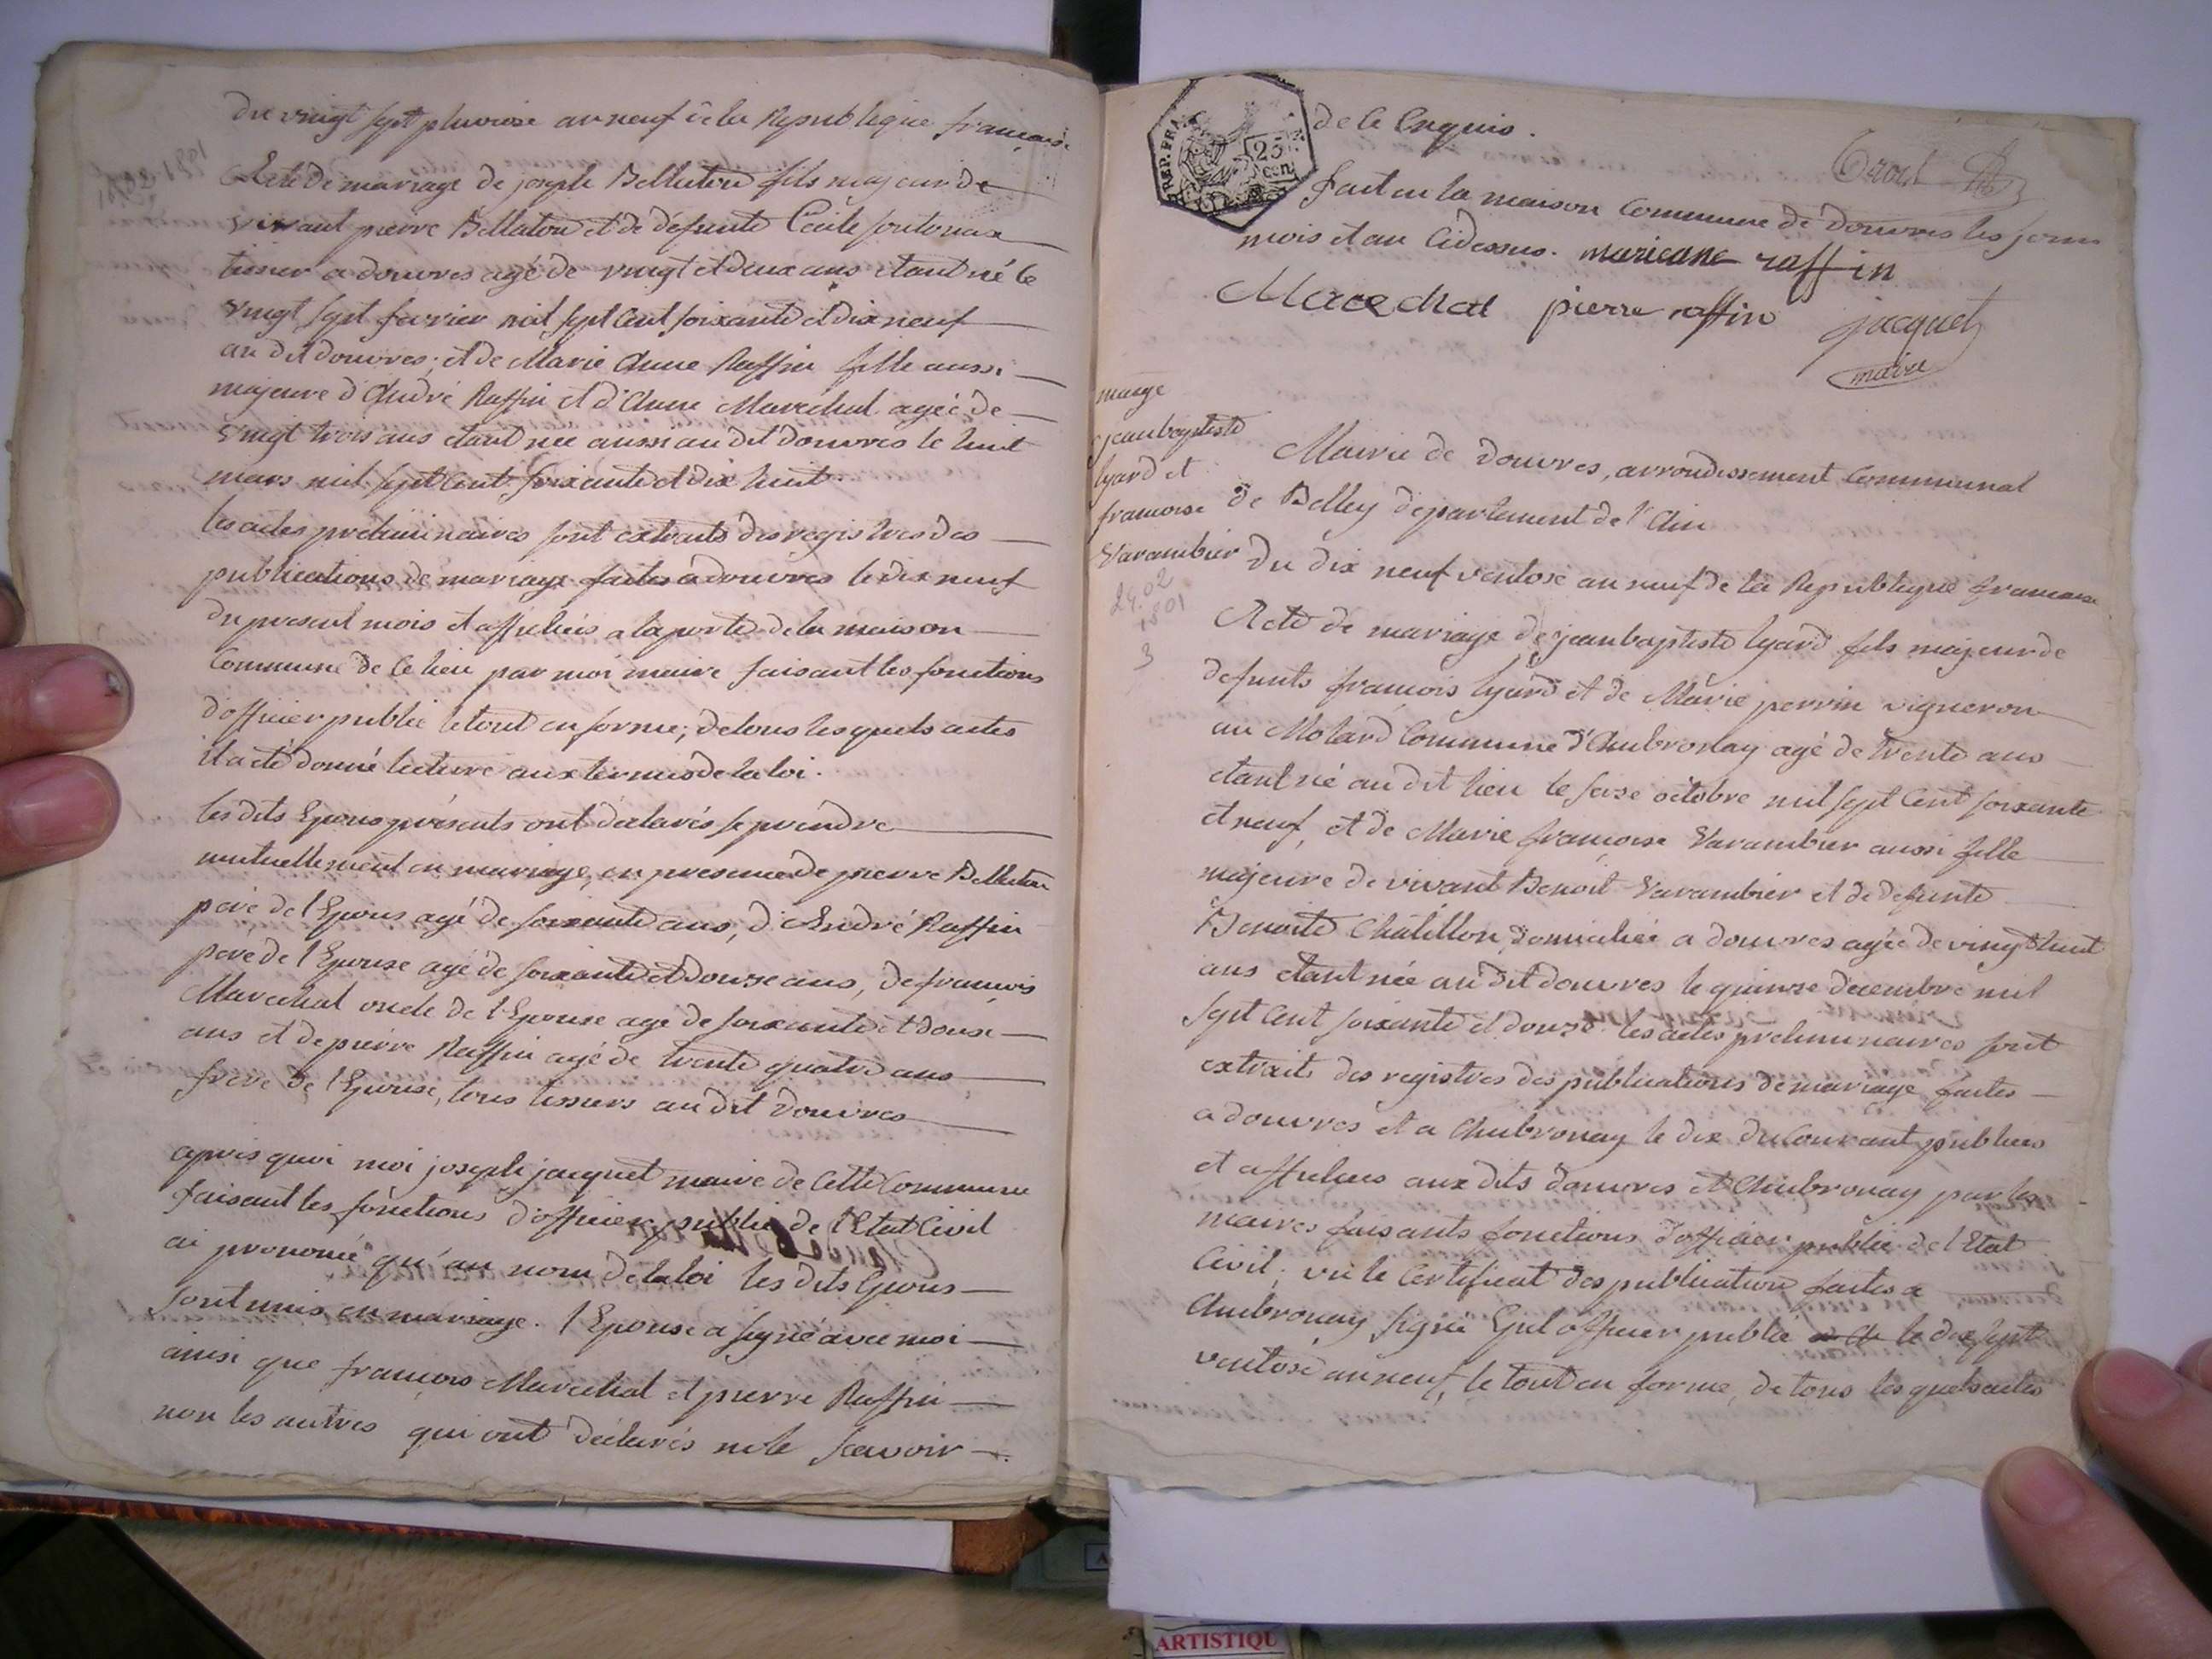 du vingt sept pluviose an neuf de la Republique française
Acte de mariage de joseph Bellaton fils majeur de
vivant pierre Bellaton et de défunte Cécile
tissier a douvres agé de vingt et deux ans etant né le
vingt sept fevrier mil sept Cent soixante et dix neuf
au dit douvres; et de Marie Anne Raffin fille aussi
majeure d'André Raffin et d'Anne Maréchal agée de
vingt trois ans etant née aussi au dit douvres le huit
mars mil sept Cent soixante et dix huit
les actes preliminaires sont extraits des registres des
publications de mariage faites a douvres le dix neuf
du present mois et affichées a la porte de la maison
Commune de Ce lieu par moi maire faisant les fonctions
d'officier public le tout en forme; de tous lesquels actes
il a été donné lecture aux termes de la loi.
les dits Epous présents ont déclarés se prendre
mutuellement en mariage, en presence de pierre Bellaton
pere de l'Epous agé de soixante ans, d'André Raffin
pere de l'Epouse agé de soixante et douze ans, de françois
Marechal oncle de l'Epouse agé de soixante et douze
ans et de pierre Raffin agé de trente quatre ans
frere de l'Epouse, tous tissiers au dit douvres
apres quoi moi joseph jacquet maire de Cette Commune
faisant les fonctions d'officier public de l'Etat Civil
ai prononcé qu'au nom de la loi les dits Epous
sont unis en mariage. l'Epouse a signé avec moi
ainsi que françois Marechal et pierre Raffin
non les autres qui ont déclarés ne le scavoir
REP. FRA.
25
cen
de Ce Enquis.
fait en la maison Commune de Douvres les jours
mois et an Cidessus. marieane raffin
Marechal pierre raffin jacquet
maire
mariage
jeanbaptiste
lyard et
francoise
Varambier
24.02
1801
3
Mairie de douvres, arrondissement Communal
de Belley département de l'Ain
Du dix neuf ventose an neuf de la Republique francaise
Acte de mariage de jeanbaptiste lyard fils majeur de
defunts françois lyard et de Marie perrin vigneron
au Molard Commune d'Ambronay agé de trente ans
etant né au dit lieu le seise octobre mil sept Cent soixante
et neuf, et de Marie françoise Varambier aussi fille
majeure de vivant Benoit Varambier et de defunte
Benoite Châtillon domiciliée a douvres agée de vingt huit
ans etant née au dit douvres le quinze décembre mil
sept Cent soixante et douze. les actes preliminaires sont
extraits des registres des publications de mariage faites
a douvres et a Ambronay le dix du Courant publiées
et affichées aux dits douvres et Ambronay par les
maires faisants fonctions d'officier public de l'Etat
Civil, vu le Certificat des publications faites a
Ambronay signé officier public le dix sept
ventose an neuf, le tout en forme, de tous les quels actes
ARTISTIQU